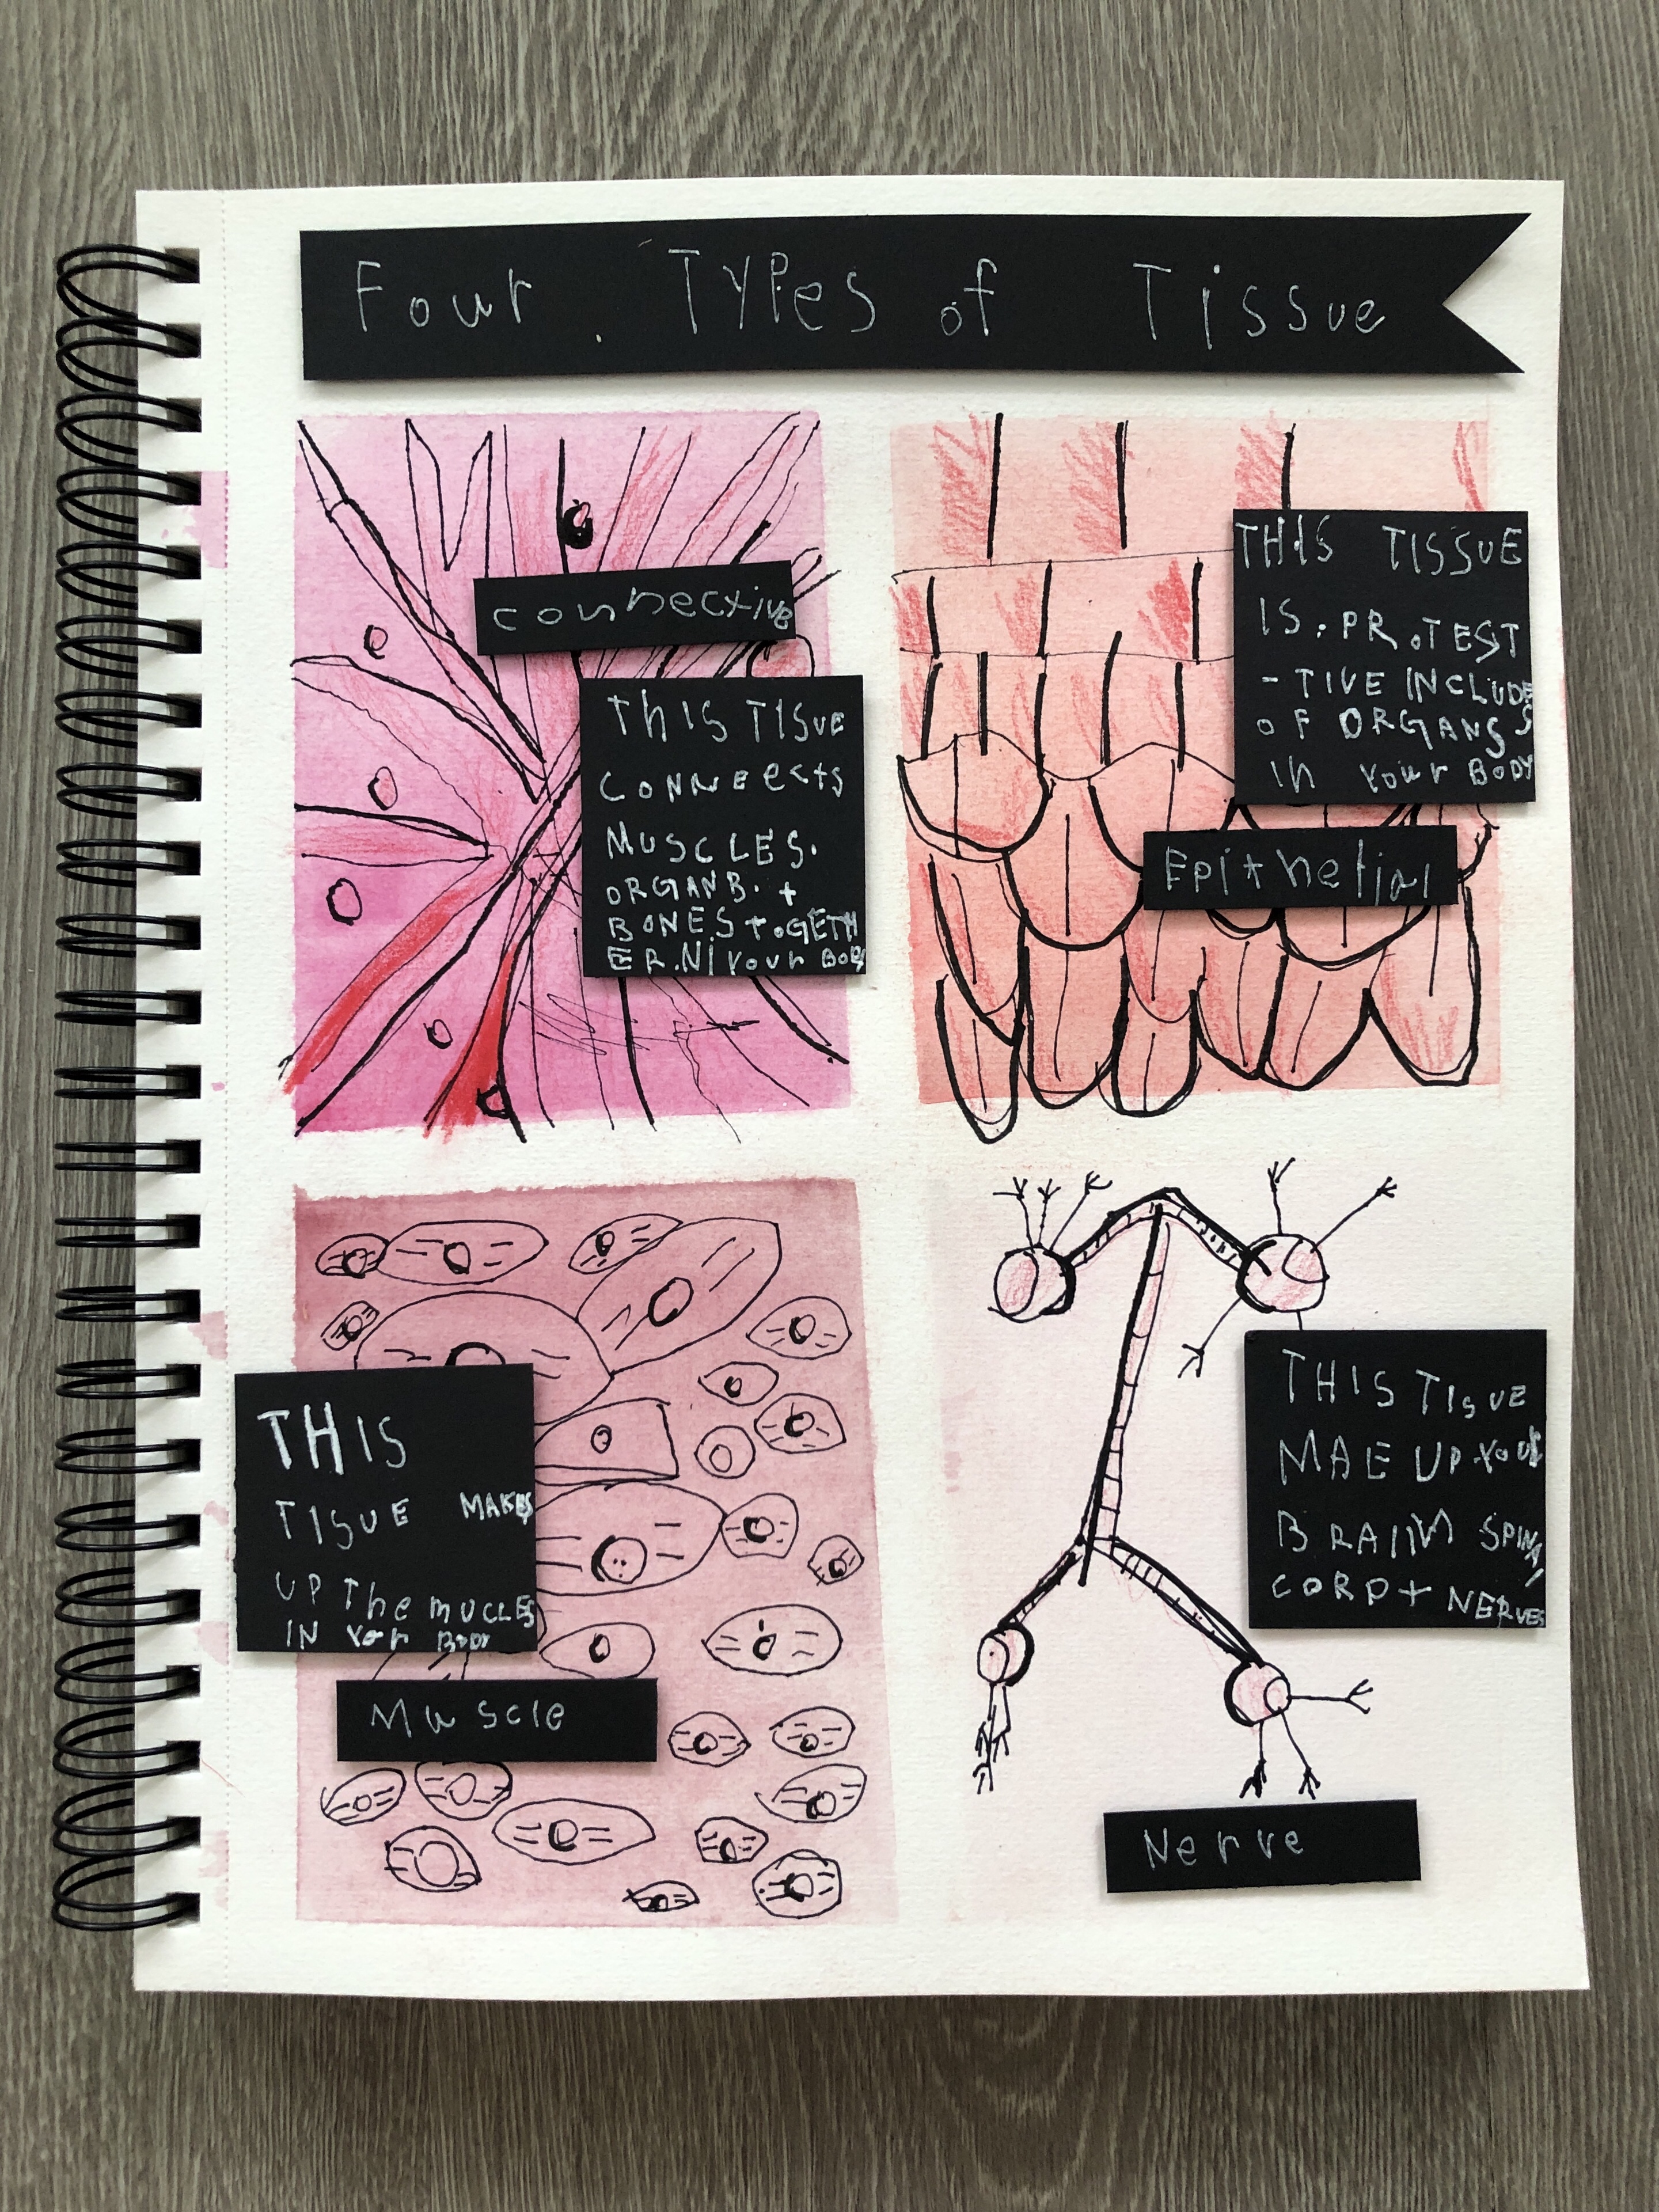 Four Types of Tissue
connective
This Tisue
conneects
MUSCLES.
ORGANB. +
BONES TOGETH
ER.Ni your BODY
THIS TISSUE
IS. PROTEST
-TIVE INCLUDES
OF ORGANS
in Your BODY
Epithelial
THIS
TISUE MAKES
UP The MUCLES
IN Your BODY
Muscle
THIS TISUE
MAE UP your
BRAIIN SPINAL
CORD + NERVES
Nerve